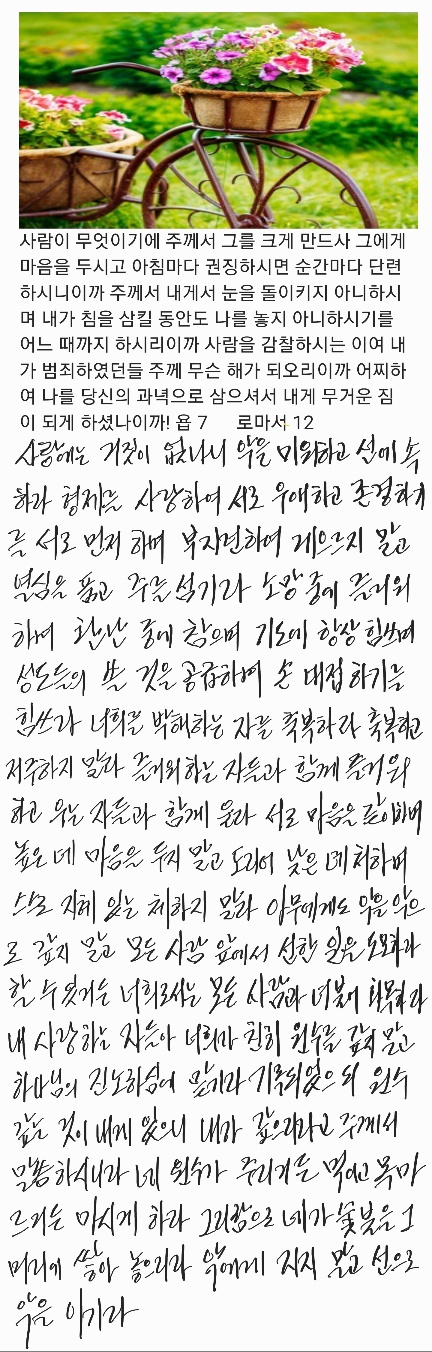 사람이 무엇이기에 주께서 그를 크게 만드사 그에게
마음을 두시고 아침마다 권징하시면 순간마다 단련
하시니이까 주께서 내게서 눈을 돌이키지 아니하시
며 내가 침을 삼킬 동안도 나를 놓지 아니하시기를
어느 때까지 하시리이까 사람을 감찰하시는 이여 내
가 범죄하였던들 주께 무슨 해가 되오리이까 어찌하
여 나를 당신의 과녁으로 삼으셔서 내게 무거운 짐
이 되게 하셨나이까! 욥 7 로마서 12
사랑에는 거짓이 없나니 악을 미워하고 선에 속
하라 형제를 사랑하여 서로 우애하고 존경하기
를 서로 먼저 하며 부지런하여 게으르지 말고
열심을 품고 주를 섬기라 소망 중에 즐거워
하며 환난 중에 참으며 기도에 항상 힘쓰며
성도들의 쓸 것을 공급하며 손 대접하기를
힘쓰라 너희를 박해하는 자를 축복하라 축복하고
저주하지 말라 즐거워하는 자들과 함께 즐거워
하고 우는 자들과 함께 울라 서로 마음을 같이하며
높은 데 마음을 두지 말고 도리어 낮은 데 처하며
스스로 지혜 있는 체하지 말라 아무에게도 악을 악으
로 갚지 말고 모든 사람 앞에서 선한 일을 도모하라
할 수 있거든 너희로서는 모든 사람과 더불어 화목하라
내 사랑하는 자들아 너희가 친히 원수를 갚지 말고
하나님의 진노하심에 맡기라 기록되었으되 원수
갚는 것이 내게 있으니 내가 갚으리라고 주께서
말씀하시니라 네 원수가 주리거든 먹이고 목마
르거든 마시게 하라 그리함으로 네가 숯불을 그
머리에 쌓아 놓으리라 악에게 지지 말고 선으로
악을 이기라